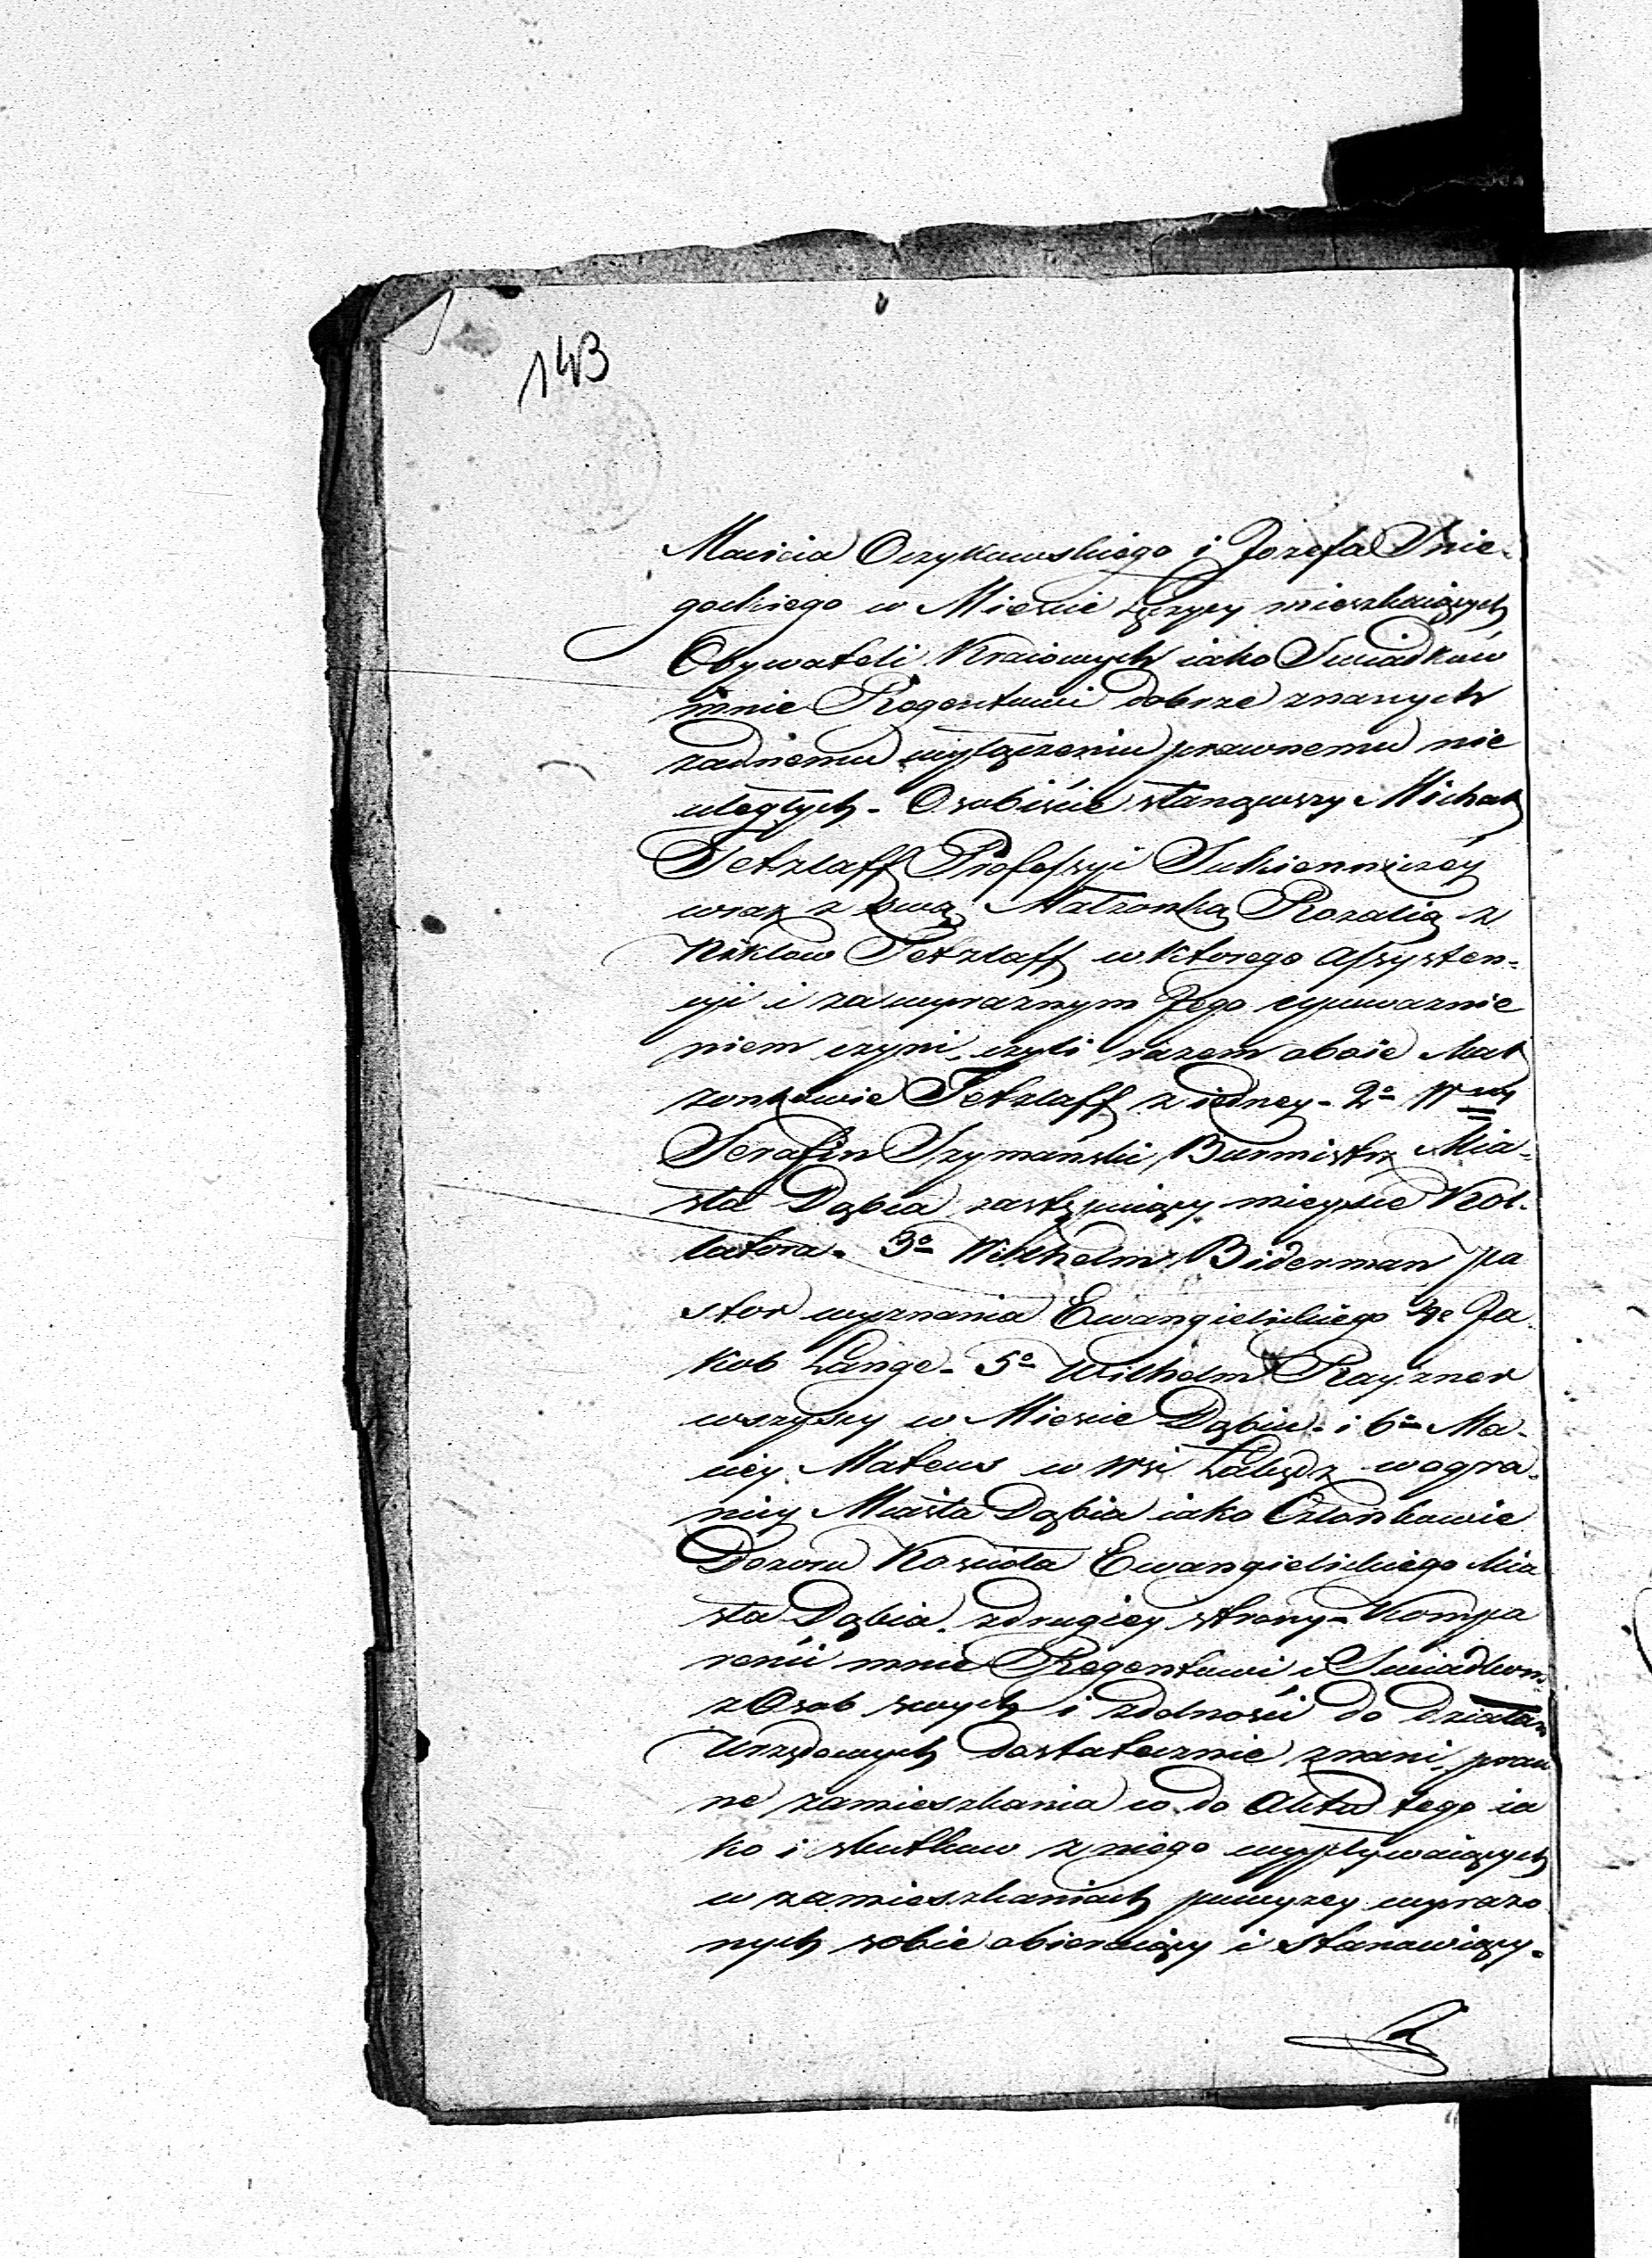 143
Macieia Orzykowskiego i Jozefa Snie-
gockiego w Mieście Łęczycy mieszkaiących
Obywateli Kraiowych iako Swiadków
mnie Regentowi dobrze znanych
żadnemu wyłączeniu prawnemu nie
uległych - Osobiście stanąwszy Michał
Tetzlaff Professyi Sukienniczéy
wraz z swą Małżonką Rozalią z
Tetzlaff w którego Assysten-
cyi i za wyraznym Jego upoważnie
niem czyni, czyli razem oboie Mał
żonkowie Tetzlaff z iedney - 2º W
Serafin Szymański Burmistrz Mia-
sta Dąbia zastępuiący mieysce Kol-
latora - 3º Wilhelm Biderman pa
stor wyznania Ewangielickiego 4º Ja
kob Lange - 5º Wilhelm Rayzner
wszyscy w Mieście Dąbiu - i 6º Ma-
ciey Mateus w Wsi w ogra-
nicy Miasta Dąbia iako Członkowie
Dozoru Kościoła Ewangielickiego Mia
sta Dąbia z drugiey strony - Kompa
renci mnie Regentowi i Swiadkom
z Osob swych i zdolności do działań
Urzędowych dostatecznie znani, praw
ne zamieszkania co do Aktu tego ia
ko i skutkow z niego wypływaiących
w zamieszkaniach powyzey wyrażo
nych sobie obieraiący i stanowiący -